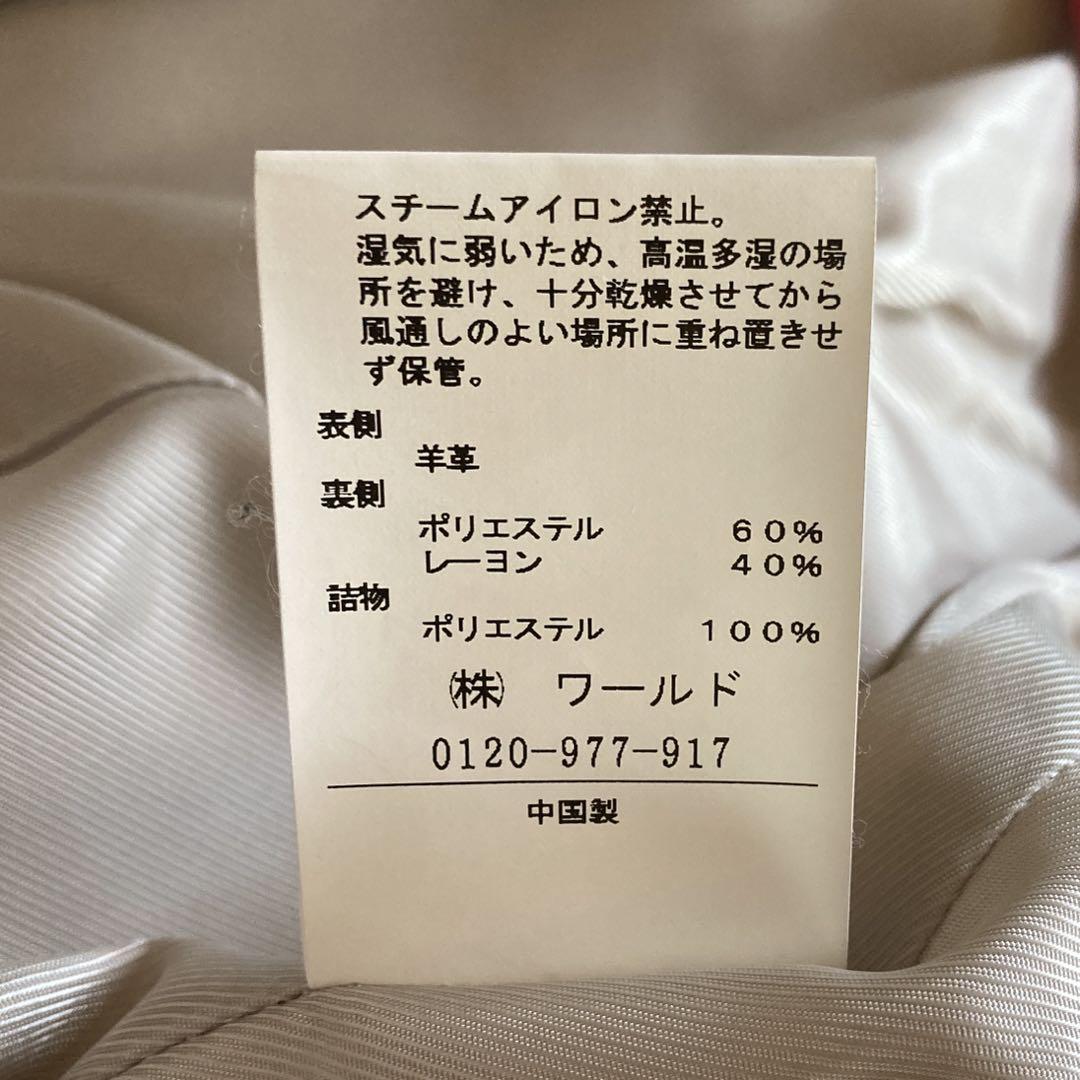 スチームアイロン禁止。
湿気に弱いため、高温多湿の場
所を避け、十分乾燥させてから
風通しのよい場所に重ね置きせ
ず保管。
表側
羊革
裏側
ポリエステル　６０％
レーヨン　４０％
詰物
ポリエステル　１００％
㈱　ワールド
0120-977-917
中国製